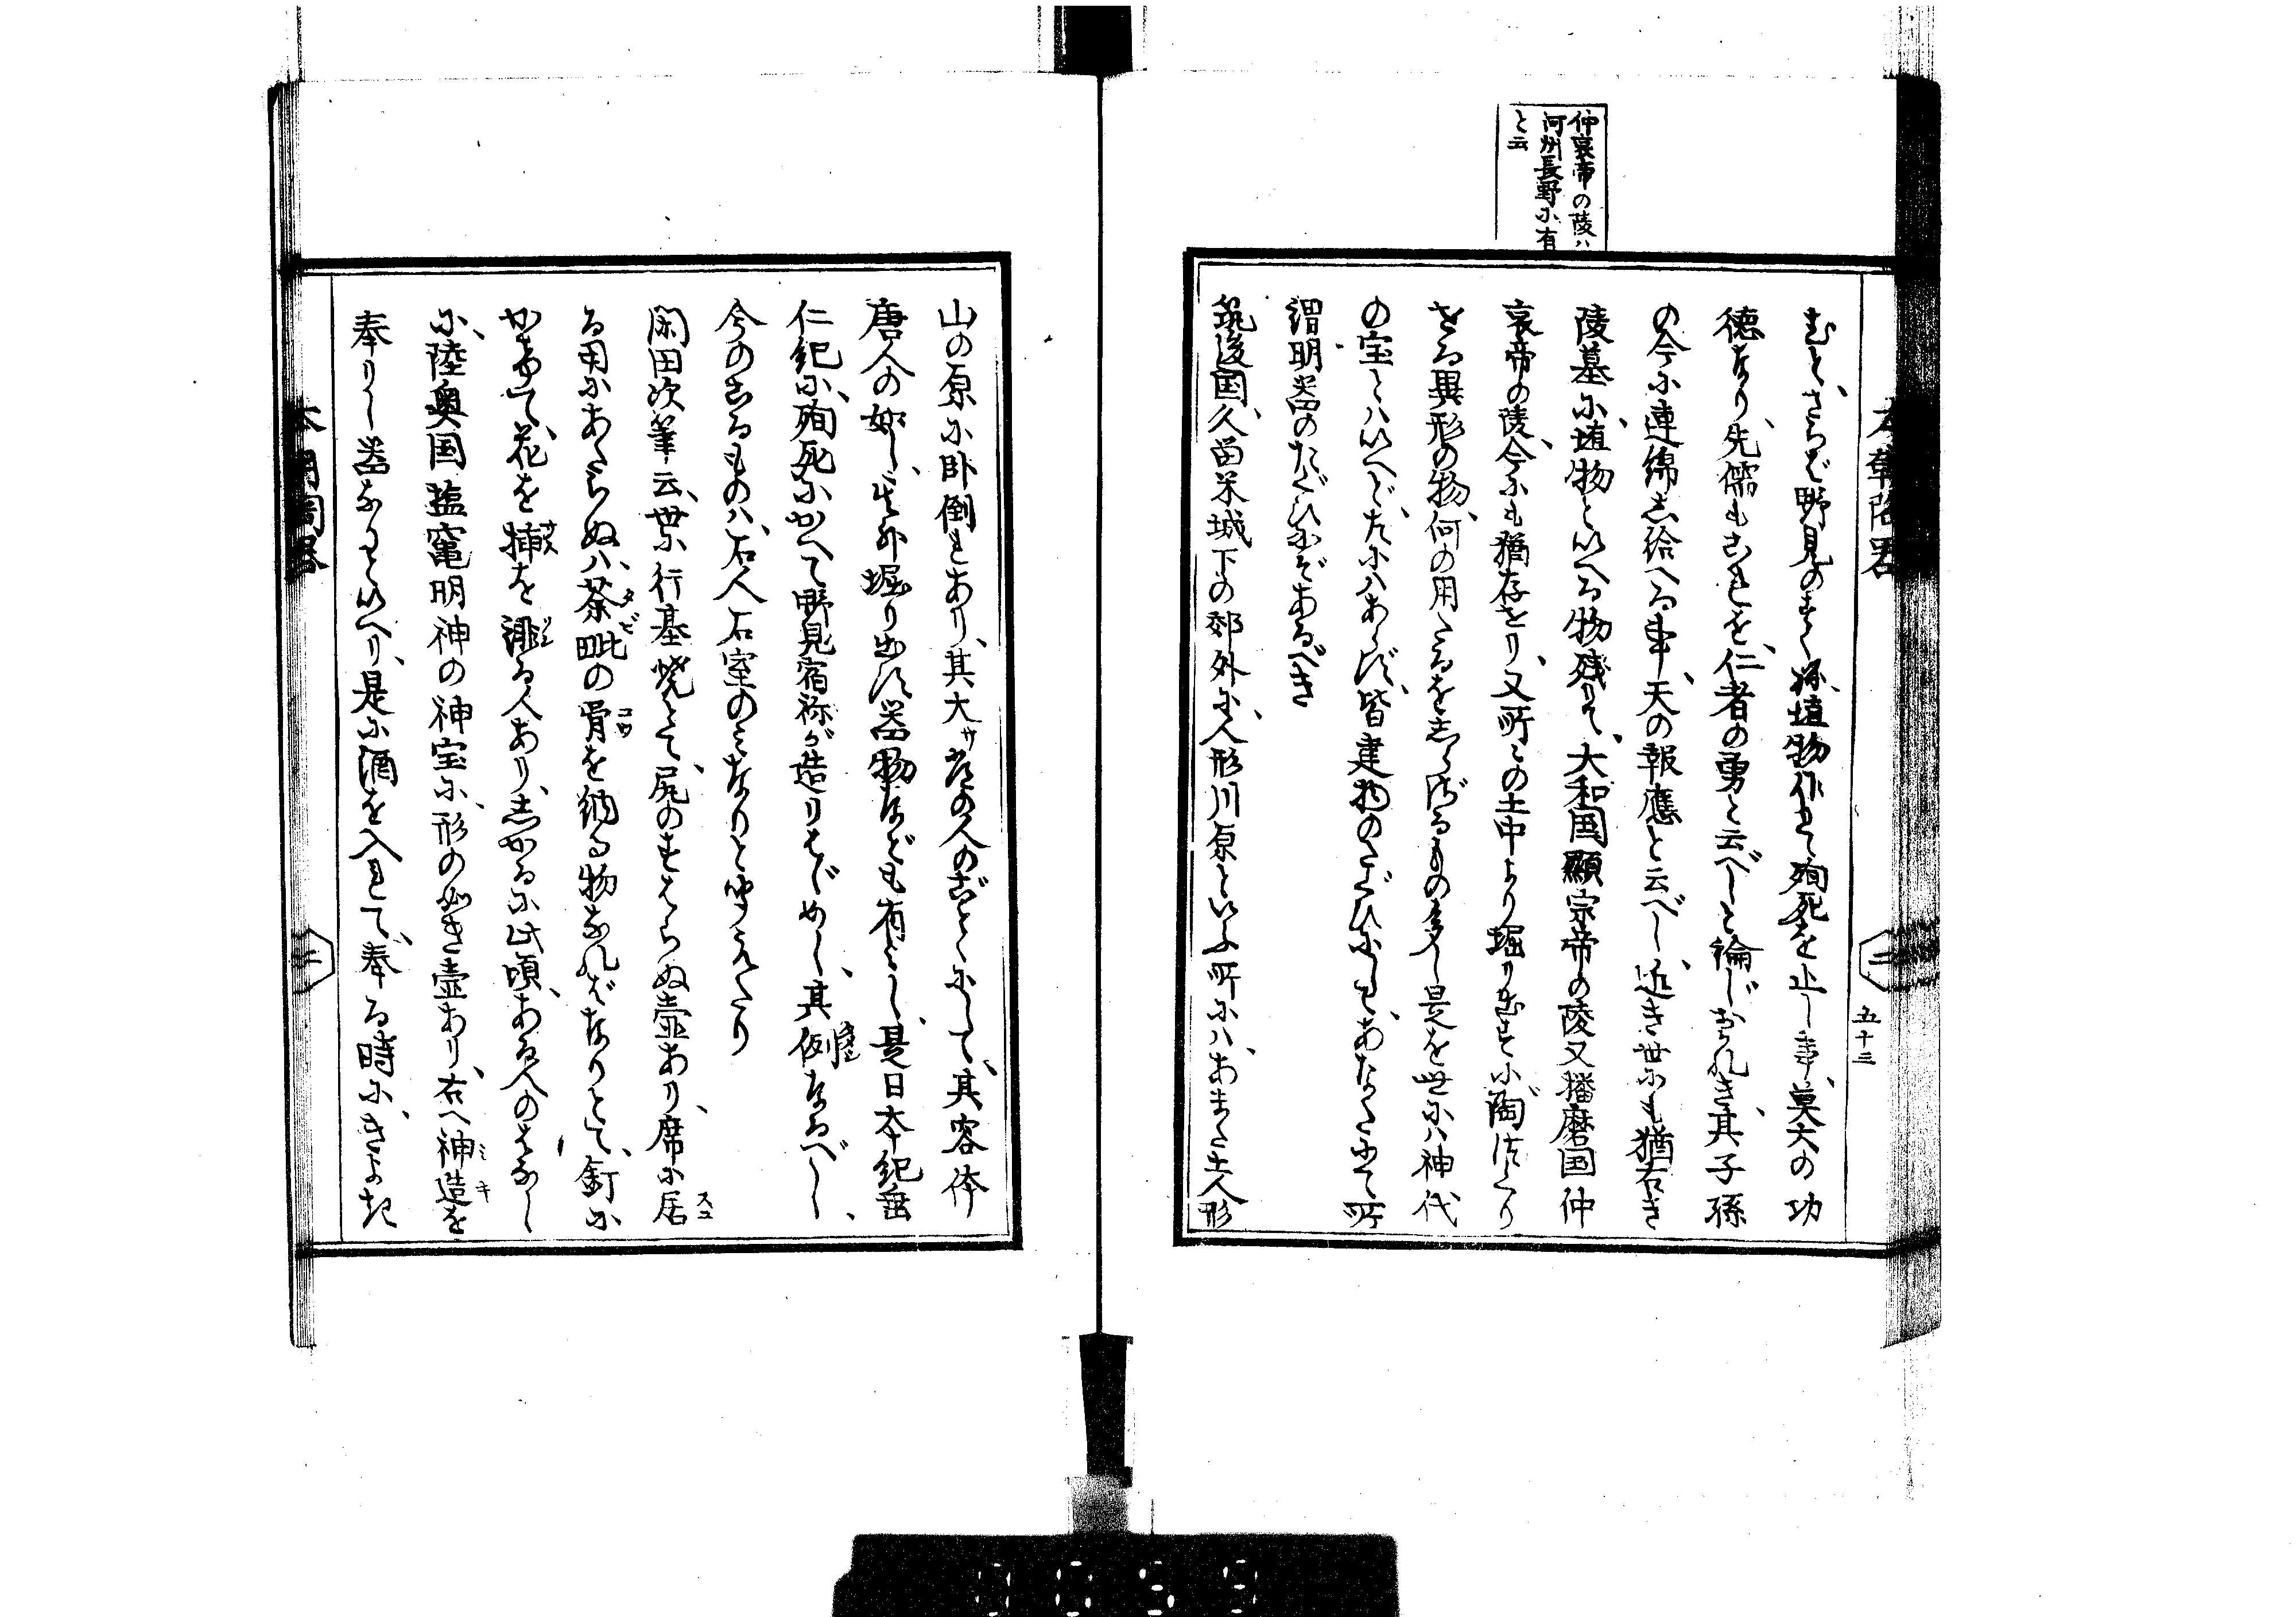 仲哀帝の陵ハ
河州長野に有
と云
五十三
二
むと、さらば野見のすくね埴物作りて殉死を止し事、莫大の功
徳なり、先儒もこれを、仁者の勇と云べしと論じおかれき、其子孫
の今に連綿し給へる事、天の報應と云べし、近き世にも猶右き
陵墓に、埴物といへる物残りて、大和国顯宗帝の陵又播磨国仲
哀帝の陵、今にも猶存せり、又所々の土中より堀り出すに、陶
せる異形の物、何の用たるをしらざるもの多し是を世にハ神代
の宝とハいへど、たにハあらず、皆建物のたぐひにし
謂明器のたぐひにぞあるべき
筑後国、久留米城下の郊外に、人形川原といふ所にハ、あまた土人形
山の原に卧倒れあり、其大サ常の人のごとくにして、其容体
唐人の如し、其外堀り出す器物なども有よし、是日本紀垂
仁紀に、殉死にかへて野見宿祢が造りはじめし、其例なるべし、
今のこるものハ、石人石室のミなりと聞えたり
閑田次筆云、世に行基焼とて、尻のすはらぬ壺あり、席に居
る用にあたらぬハ、荼毗の骨を納る物なればなりとて、釘に
かけて、花を挿を、誹る人あり、しかるに此頃、ある人のはなし
に、陸奥国塩竃明神の神宝に、形の如き壺あり、右へ神造を
奉りし器なりといへり、是に酒を入れて、奉る時に、